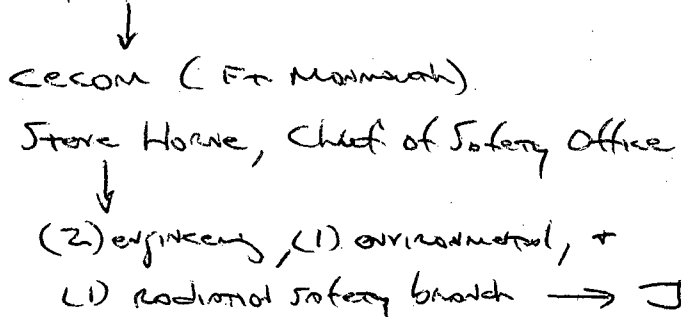 ↓
CECOM (Ft. Monmouth)
Steve Horne, Chief of Safety Office
↓
(2) engineering, (1) environmental, +
(1) radiation safety branch → J